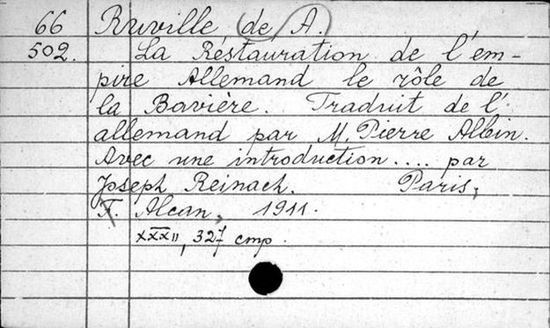 66 Ruville de A.
502. La Réstauration de l'em-
pire Allemand le rôle de
la Bavière. Traduit de l'
allemand par M. Pierre Albin.
Avec une introduction.... par
Joseph Reinach. Paris,
F. Alcan, 1911.
XXXII, 327 cmp.